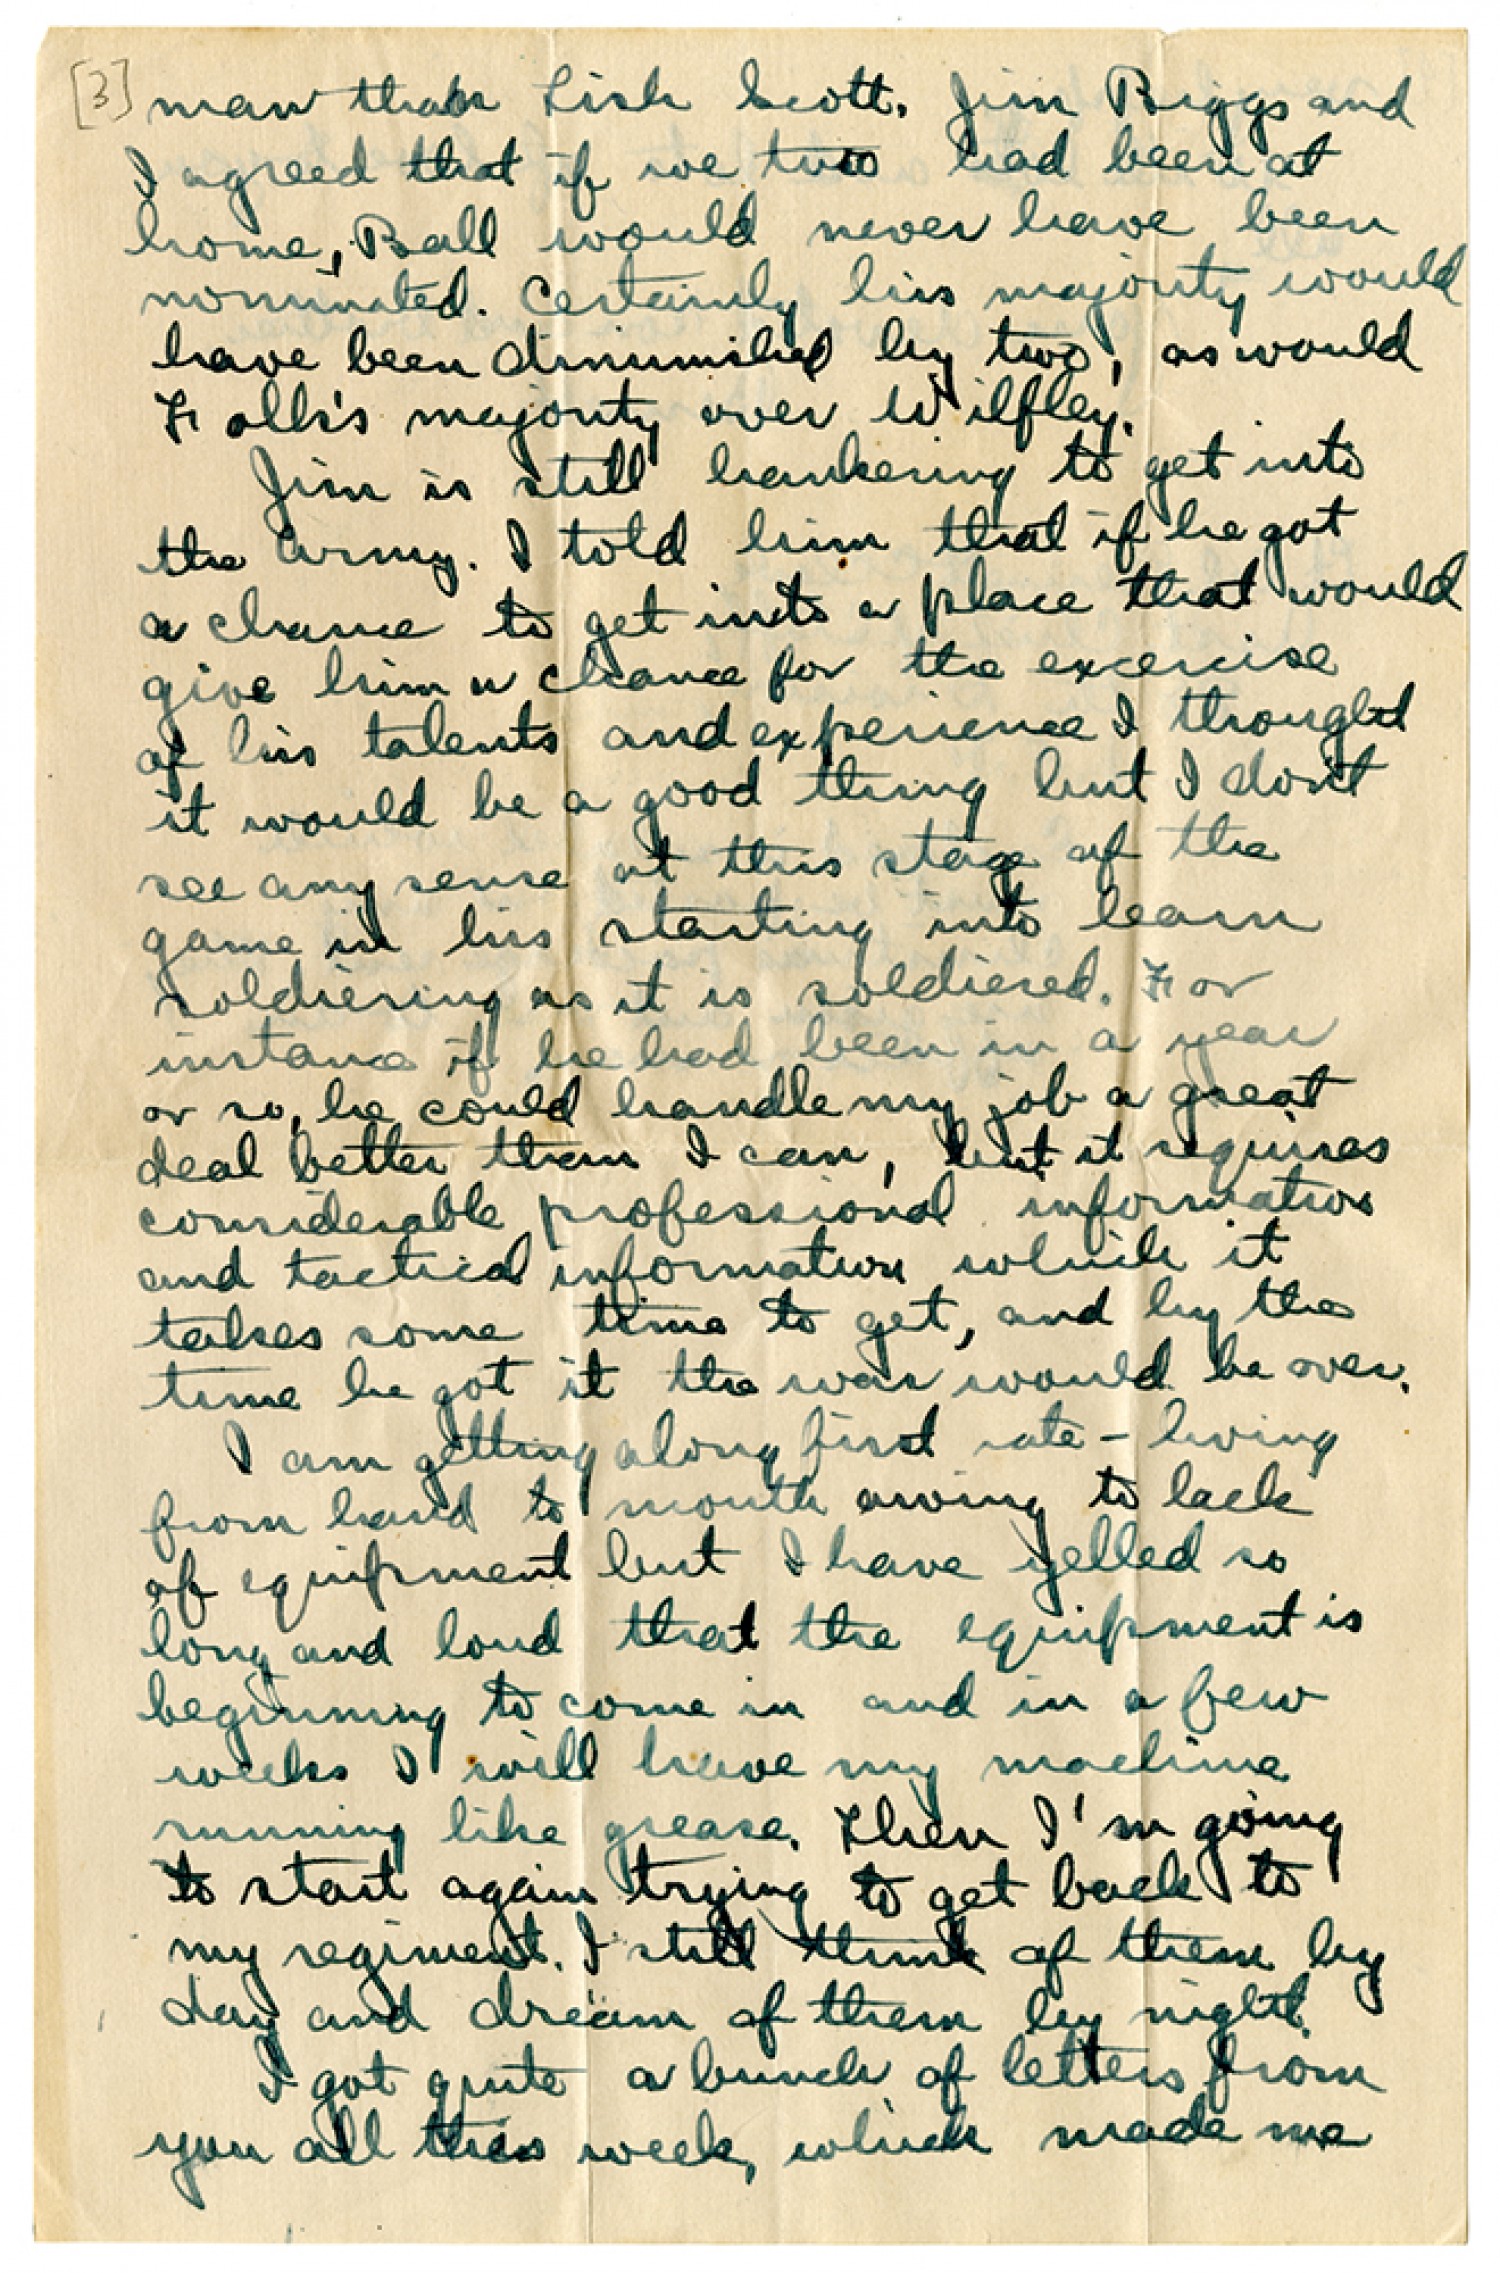 [3] man than Lish Scott. Jim Biggs and
I agreed that if we two had been at
home, Ball would never have been
nominated. Certainly his majority would
have been diminished by two, as would
Folk's majority over Wilfley.
Jim is still hankering to get into
the army. I told him that if he got
a chance to get into a place that would
give him a chance for the exercise
of his talents and experience I thought
it would be a good thing but I don't
see any sense at this stage of the
game in his starting into learn
soldiering as it is soldiered. For
instance if he had been in a year
or so, he could handle my job a great
deal better than I can, but it requires
considerable professional information
and tactical information which it
takes some time to get, and by the
time he got it the war would be over.
I am getting along first rate - living
from hand to mouth owing to lack
of equipment but I have yelled so
long and loud that the equipment is
beginning to come in and in a few
weeks I will have my machine
running like grease. Then I'm going
to start again trying to get back to
my regiment. I still think of them by
day and dream of them by night.
I got quite a bunch of letters from
you all this week, which made me